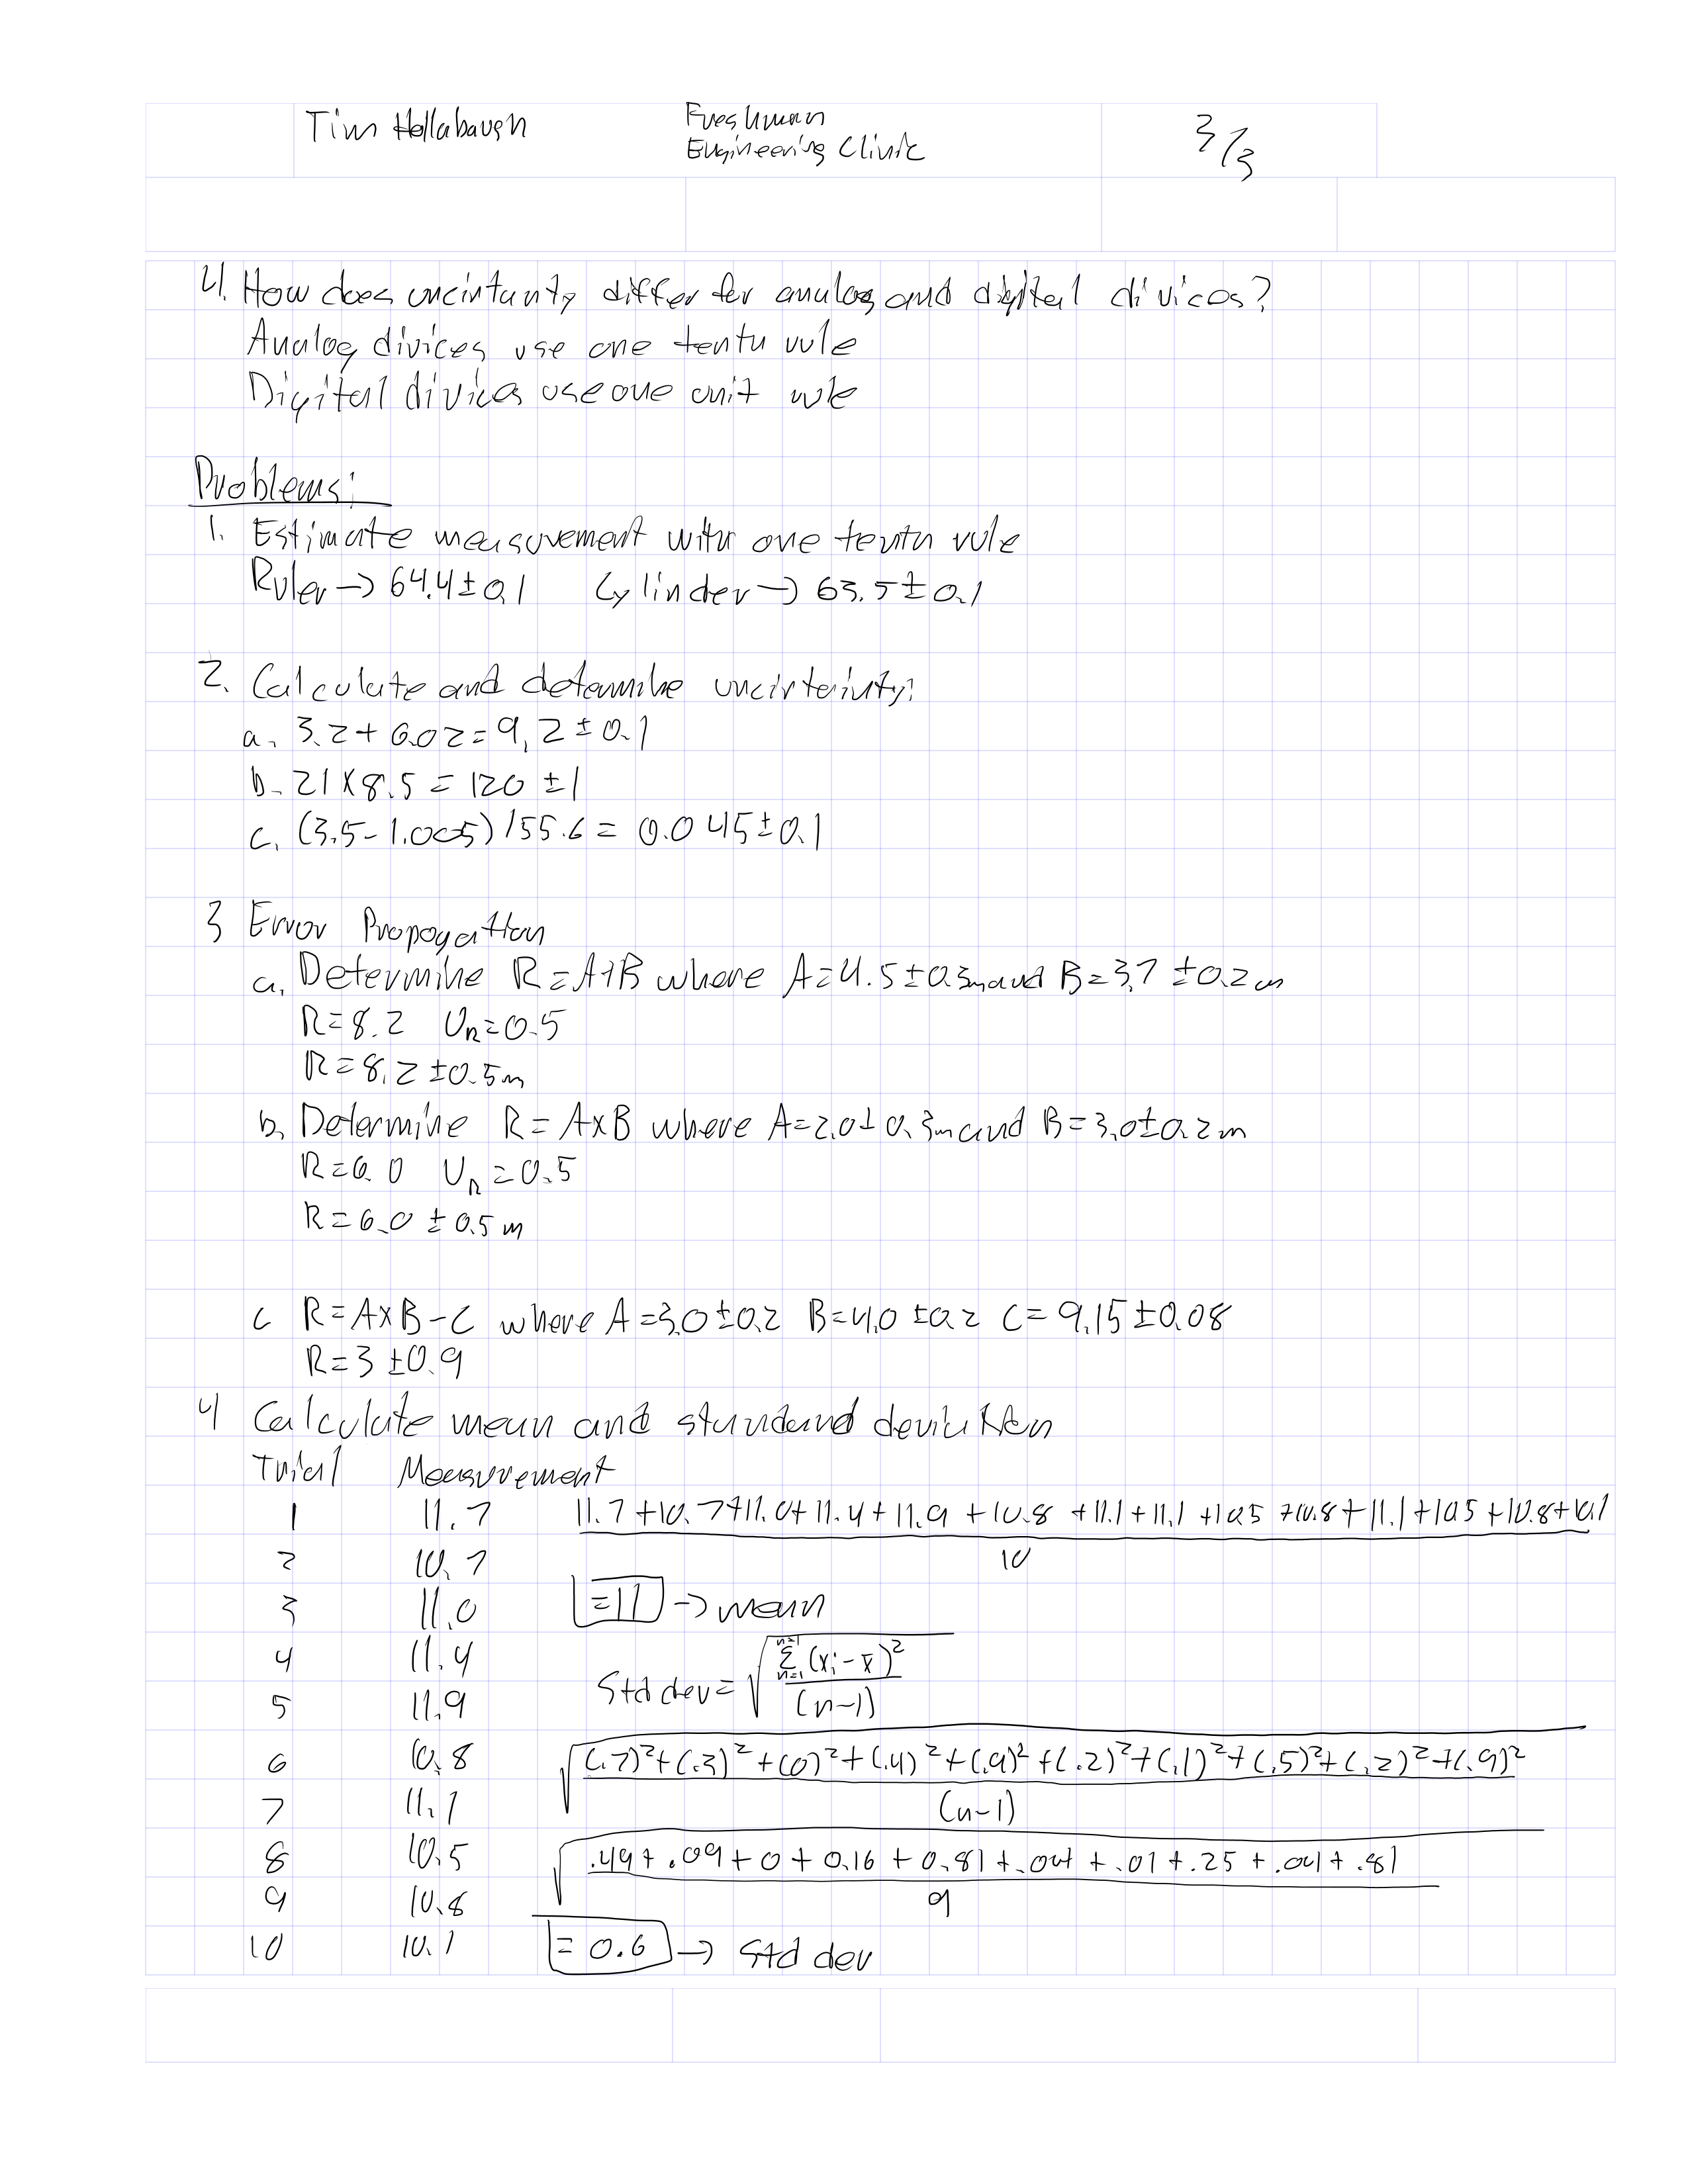 Tim Hollabaugh
Freshman
Engineering Clinic
3/3
4. How does uncintunty differ for analog and digital divices?
Analog divices use one tenth rule
Digital divices use one unit rule
Problems:
1. Estimate measurement with one tenth rule
Ruler → 64.4 ± 0.1 Cylinder → 63.5 ± 0.1
2. Calculate and determine uncirterinty:
a. 3.2 + 6.02 = 9.2 ± 0.1
b. 21 x 8.5 = 120 ± 1
c. (3.5 - 1.005) / 55.6 = 0.045 ± 0.1
3 Error Propogation
a. Determine R = A+B where A = 4.5 ± 0.3m and B = 3.7 ± 0.2 m
R = 8.2 U_R = 0.5
R = 8.2 ± 0.5 m
b. Determine R = AxB where A = 2.0 ± 0.3m and B = 3.0 ± 0.2 m
R = 6.0 U_R = 0.5
R = 6.0 ± 0.5 m
c R = AxB - C where A = 3.0 ± 0.2 B = 4.0 ± 0.2 C = 9.15 ± 0.08
R = 3 ± 0.9
4 Calculate mean and standard deviation
Trial Measurement
1 11.7 11.7 + 10.7 + 11.0 + 11.4 + 11.9 + 10.8 + 11.1 + 11.1 + 10.5 + 10.8 + 11.1 + 10.5 + 10.8 + 10.1
2 10.7 10
3 11.0 = 11 → mean
4 11.4 Std dev = √(Σ (xi - x̄)² / (n-1))
5 11.9
6 10.8 √ (.7)² + (.3)² + (0)² + (.4)² + (.9)² + (.2)² + (.1)² + (.5)² + (.2)² + (.9)²
7 11.1 (n-1)
8 10.5 √ .49 + .09 + 0 + 0.16 + 0.81 + .04 + .01 + .25 + .04 + .81
9 10.8 9
10 10.1 = 0.6 → Std dev